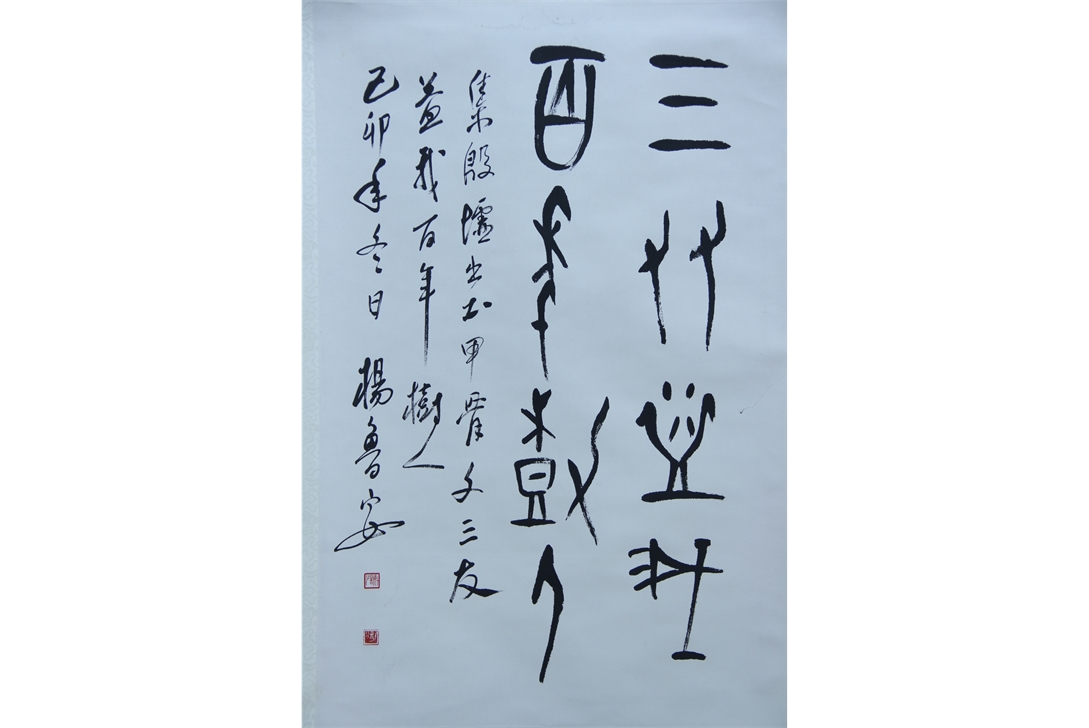 三友益我
百年樹人
集殷墟出土甲骨文三友
益我百年樹人
己卯年冬日 楊魯安